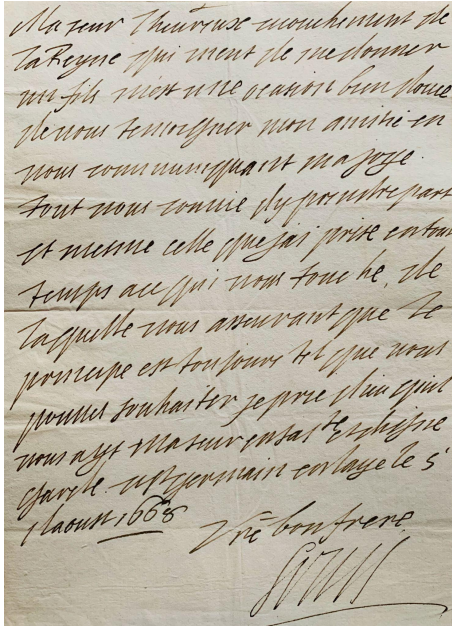 Ma seur l'heureuse acouchement de
la Reyne qui vient de me donner
un fils m'est une ocasion bien douce
de vous temoigner mon amitié en
vous communiquant ma joye.
tout vous convie dy prendre part
et mesme celle que jai prise en tout
temps a ce qui vous touche, de
laquelle vous asseurant que le
principe est toujours tel que vous
pouvez souhaiter je prie dieu quil
vous ayt ma seur en sa ste et digne
garde. a st germain en laye le 5
d'aoust 1668
Vre bon frere
Louis